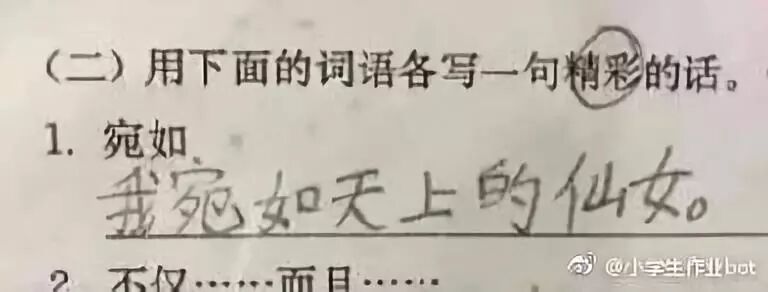 （二）用下面的词语各写一句精彩的话。
1. 宛如
我宛如天上的仙女。
2. 不仅……而且……
@小学生作业bot